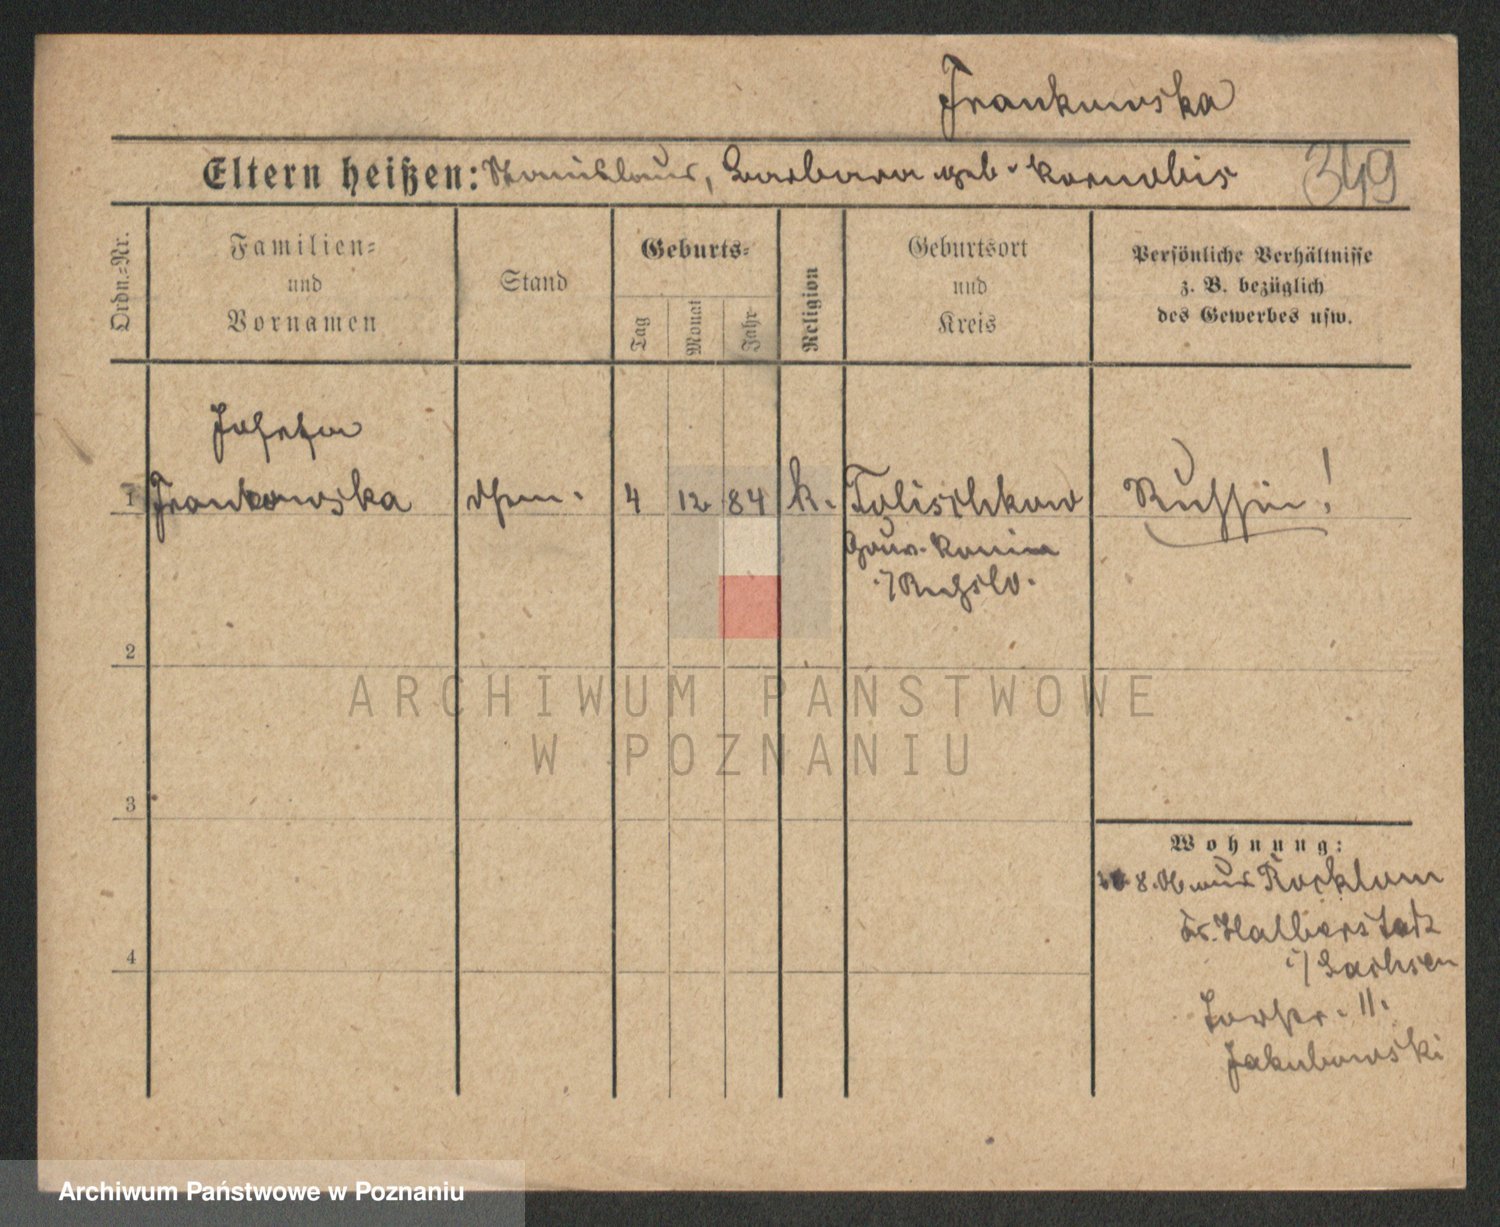 Frankowska
Eltern heißen: Stanislaus, Barbara geb. Kornobis
349
Ordn.=Nr.
Familien=
und
Vornamen
Stand
Geburts=
Tag
Monat
Jahr
Religion
Geburtsort
und
Kreis
Persönliche Verhältnisse
z. B. bezüglich
des Gewerbes usw.
Josefa
1 Frankowska
4 12. 84 k. Tolischkow
Russin!
Gouv. Konin
i/Rußld.
2
ARCHIWUM PAŃSTWOWE
W POZNANIU
3
Wohnung:
8. 06 aus Rocklum
Kr. Halberstadt
i/Sachsen
4
11.
Jakubowski
Archiwum Państwowe w Poznaniu